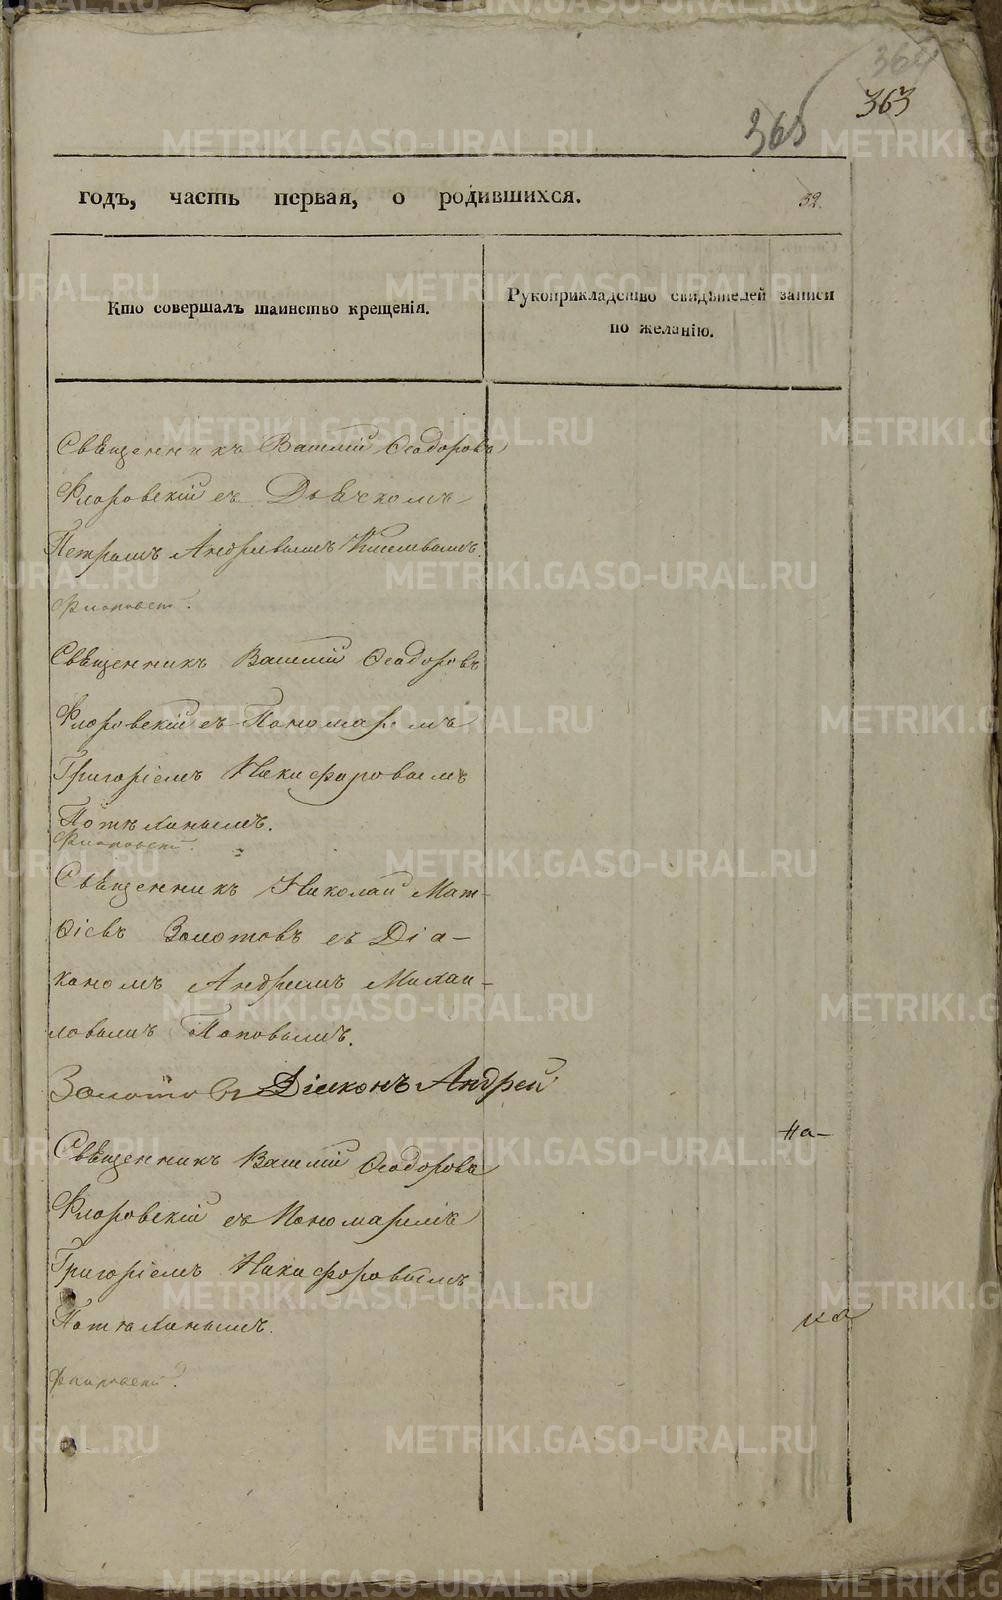 364
363
365
годъ, часть первая, о родившихся.
32.
Кто совершалъ таинство крещенія.
Рукоприкладство свидѣтелей записи
по желанію.
Свѣщенникъ Василій Ѳеодоровъ
Флоровскій съ Дьячкомъ
Петромъ Андреевымъ Киселевымъ.
Свѣщенникъ Василій Ѳеодоровъ
Флоровскій съ Пономаремъ
Григоріемъ Никифоровымъ
Потѣхинымъ.
Свѣщенникъ Николай Мат-
ѳіевъ Золотовъ съ Діа-
кономъ Андреемъ Михаи-
ловымъ Поповымъ.
Золотовъ Діаконъ Андрей
на-
Свѣщенникъ Василій Ѳеодоровъ
Флоровскій съ Пономаремъ
Григоріемъ Никифоровымъ
на
Потѣхинымъ.
METRIKI.GASO-URAL.RU